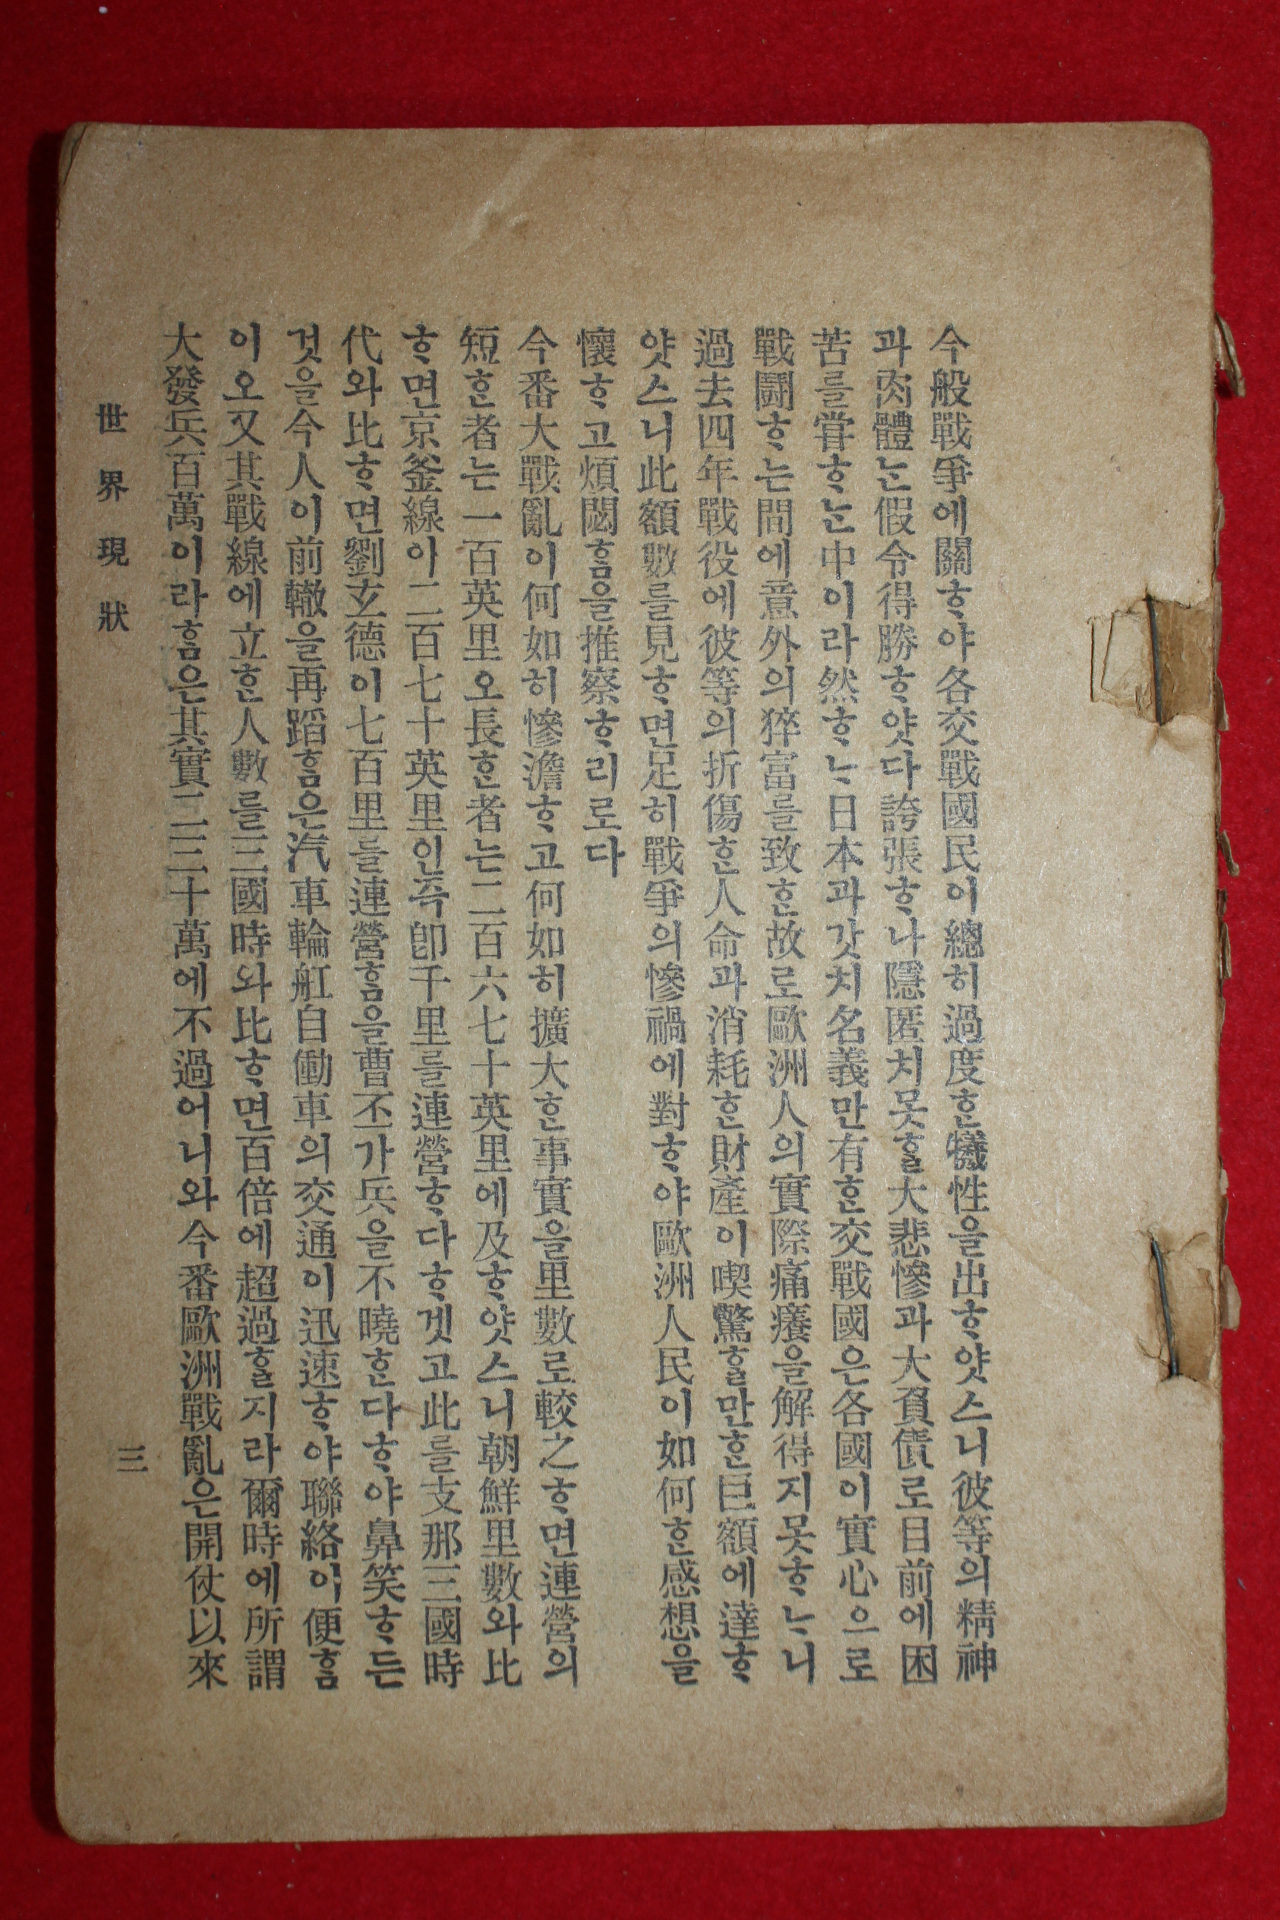 今般戰爭에關ᄒᆞ야各交戰國民이總히過度ᄒᆞᆫ犧性을出ᄒᆞ얏스니彼等의精神
과肉體ᄂᆞᆫ假令得勝ᄒᆞ얏다誇張ᄒᆞ나隱匿치못ᄒᆞᆯ大悲慘과大負債로目前에困
苦를甞ᄒᆞᄂᆞᆫ中이라然ᄒᆞᄂᆞ日本과갓치名義만有ᄒᆞᆫ交戰國은各國이實心으로
戰鬪ᄒᆞ는間에意外의猝富를致ᄒᆞᆫ故로歐洲人의實際痛癢을解得지못ᄒᆞᄂᆞ니
過去四年戰役에彼等의折傷ᄒᆞᆫ人命과消耗ᄒᆞᆫ財產이喫驚ᄒᆞᆯ만ᄒᆞᆫ巨額에達ᄒᆞ
얏스니此額數를見ᄒᆞ면足히戰爭의慘禍에對ᄒᆞ야歐洲人民이如何ᄒᆞᆫ感想을
懷ᄒᆞ고煩悶ᄒᆞᆷ을推察ᄒᆞ리로다
今番大戰亂이何如히慘澹ᄒᆞ고何如히擴大ᄒᆞᆫ事實을里數로較之ᄒᆞ면連營의
短ᄒᆞᆫ者는一百英里오長ᄒᆞᆫ者는二百六七十英里에及ᄒᆞ얏스니朝鮮里數와比
ᄒᆞ면京釜線아二百七十英里인즉卽千里를連營ᄒᆞ다ᄒᆞ겟고此를支那三國時
代와比ᄒᆞ면劉玄德이七百里를連營ᄒᆞᆷ을曹丕가兵을不曉ᄒᆞᆫ다ᄒᆞ야鼻笑ᄒᆞ든
것을今人이前轍을再蹈ᄒᆞᆷ은汽車輪舡自働車의交通이迅速ᄒᆞ야聯絡이便ᄒᆞᆷ
이오又其戰線에立ᄒᆞᆫ人數를三國時와比ᄒᆞ면百倍에超過ᄒᆞᆯ지라爾時에所謂
大發兵百萬이라ᄒᆞᆷ은其實二三十萬에不過어니와今番歐洲戰亂은開仗以來
世界現狀
三